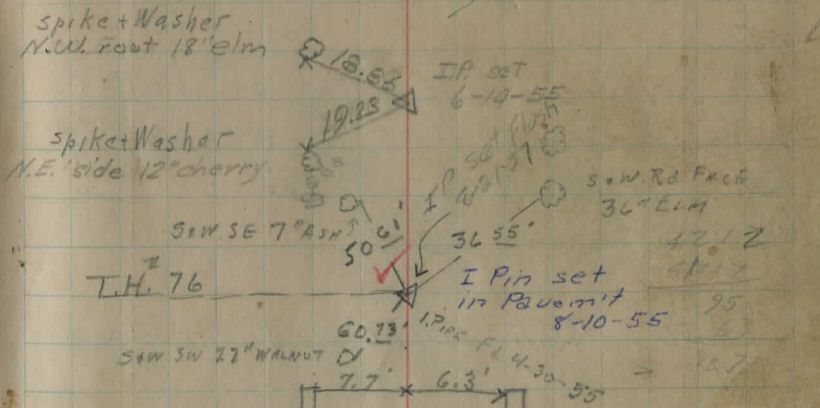 spike+Washer
N.W. root 18" elm
18.82
I.P. set
6-14-55
19.23
spike+Washer
N.E. side 12" cherry
I P set Flush
S+W. Rd Face
36" ELM
S+W. SE 7" ASH
50 61'
36 55'
T.H. 76
I Pin set
in Pavem't
8-10-55
60.73'
I.PIPE Fd 4-30-55
S+W SW 22" WALNUT
7.7'
6.3'
95